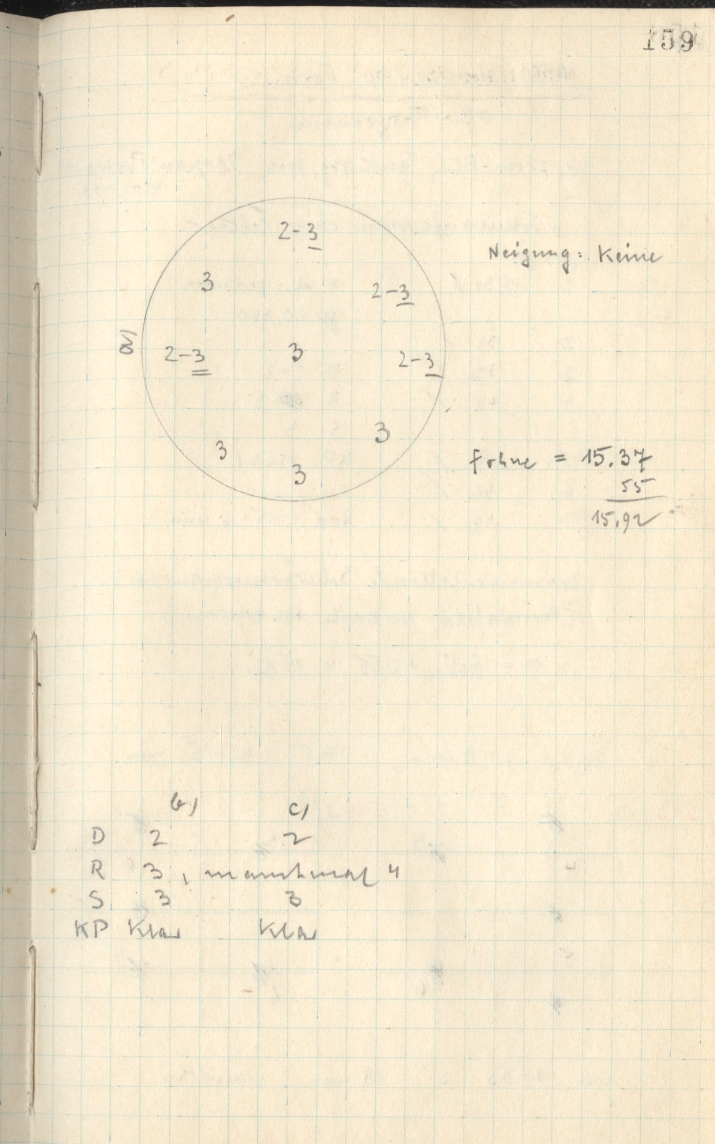 159
2-3
3
2-3
Neigung: Keine
a)
2-3
3
2-3
3
3
3
= 15.37
55
15,92
b) c)
D 2 2
R 3, manchmal 4
S 3 3
KP Klar Klar